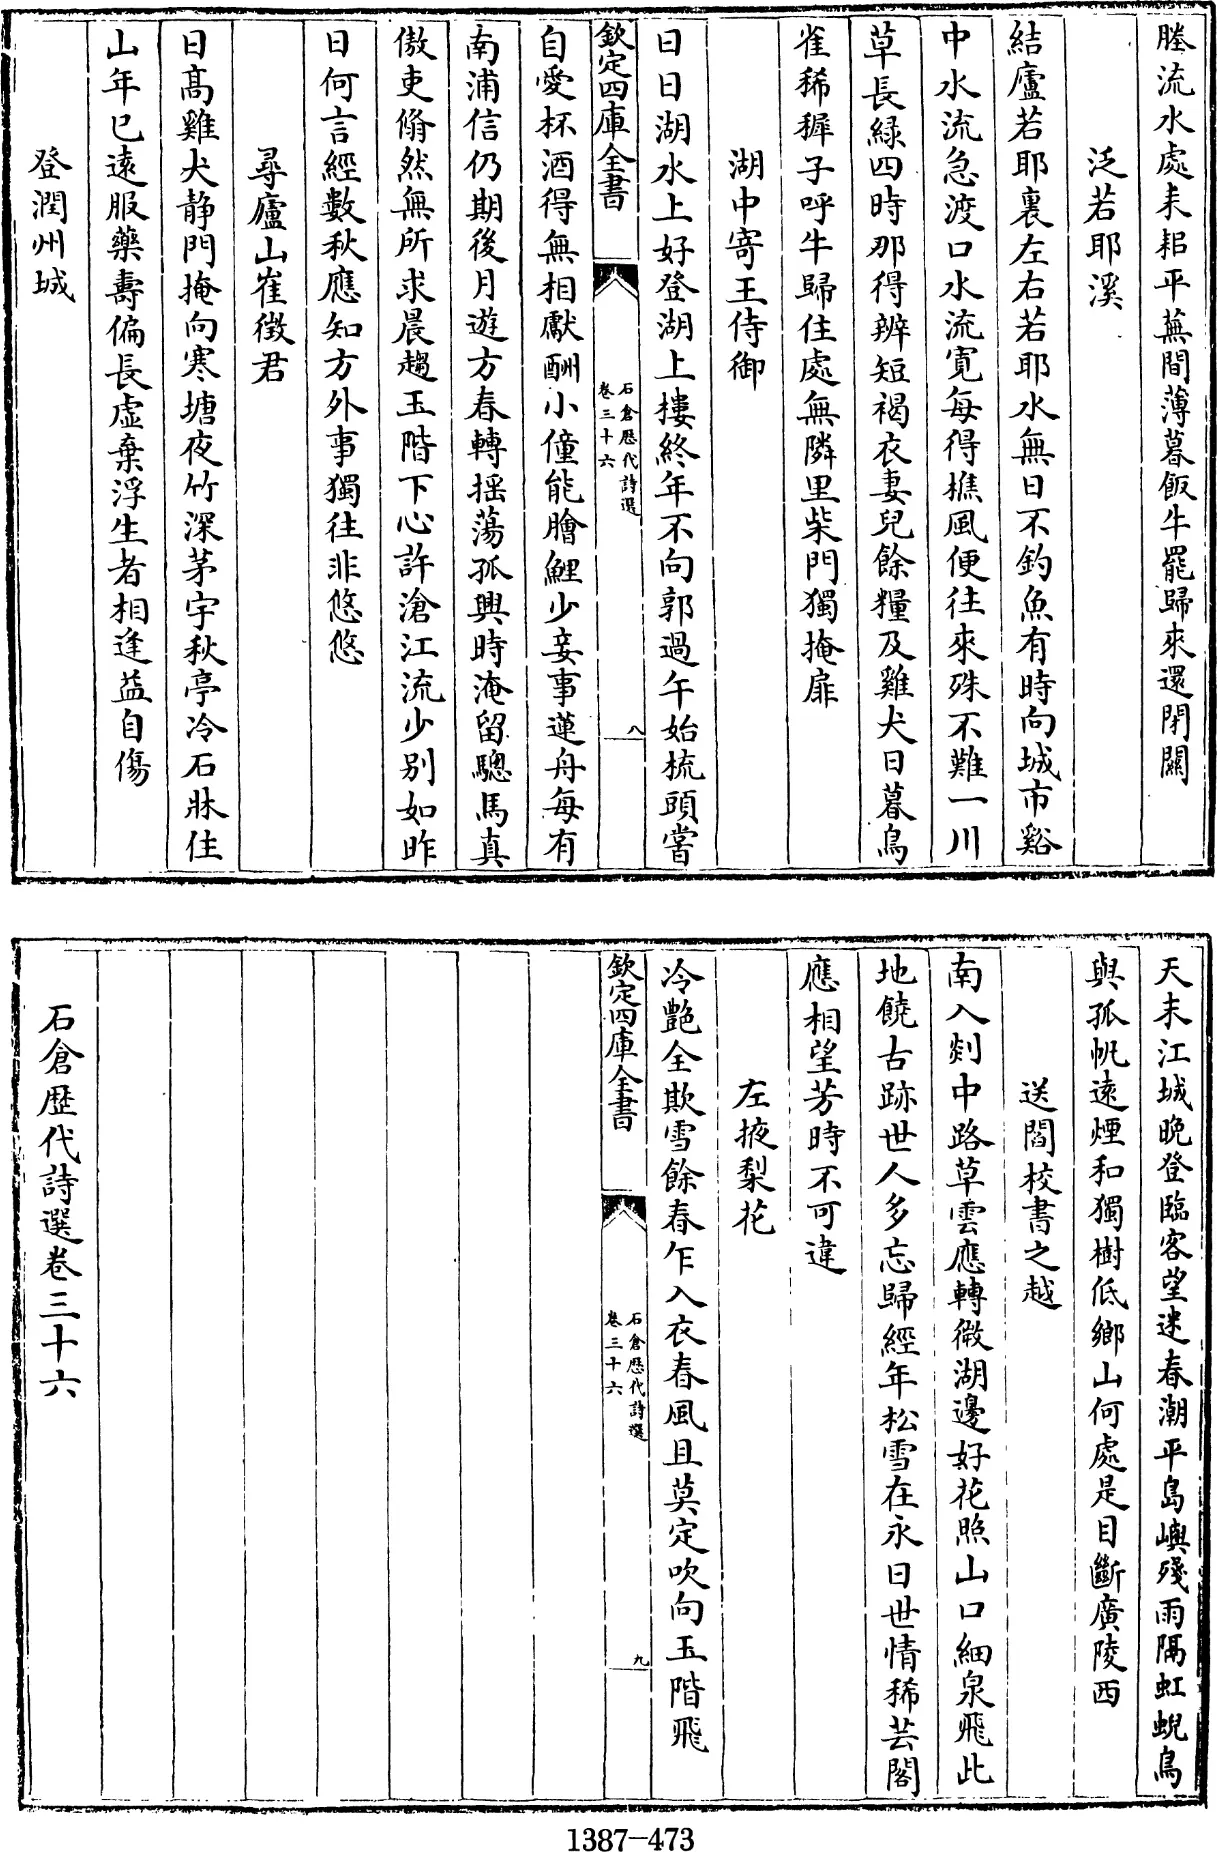 塍流水處耒耜平蕪間薄暮飯牛罷歸來還閉關
泛若耶溪
結廬若耶裏左右若耶水無日不釣魚有時向城市谿
中水流急渡口水流寛每得樵風便往來殊不難一川
草長緑四時那得辨短褐衣妻兒餘糧及雞犬日暮鳥
雀稀穉子呼牛歸住處無隣里柴門獨掩扉
湖中寄王侍御
日日湖水上好登湖上樓終年不向郭過午始梳頭嘗
欽定四庫全書
石倉歴代詩選
卷三十六
八
自愛杯酒得無相獻酬小僮能膾鯉少妾事蓮舟每有
南浦信仍期後月遊方春轉摇蕩孤興時淹留驄馬真
傲吏翛然無所求晨趨玉階下心許滄江流少别如昨
日何言經數秋應知方外事獨往非悠悠
尋廬山崔徴君
日髙雞犬静門掩向寒塘夜竹深茅宇秋亭冷石牀住
山年已遠服藥壽偏長虚棄浮生者相逢益自傷
登潤州城
天末江城晩登臨客望迷春潮平島嶼殘雨隔虹蜺鳥
與孤帆遠煙和獨樹低鄉山何處是目斷廣陵西
送閻校書之越
南入剡中路草雲應轉微湖邊好花照山口細泉飛此
地饒古跡世人多忘歸經年松雪在永日世情稀芸閣
應相望芳時不可違
左掖梨花
冷艷全欺雪餘春乍入衣春風且莫定吹向玉階飛
欽定四庫全書
石倉歴代詩選
卷三十六
九
石倉歴代詩選卷三十六
1387-473